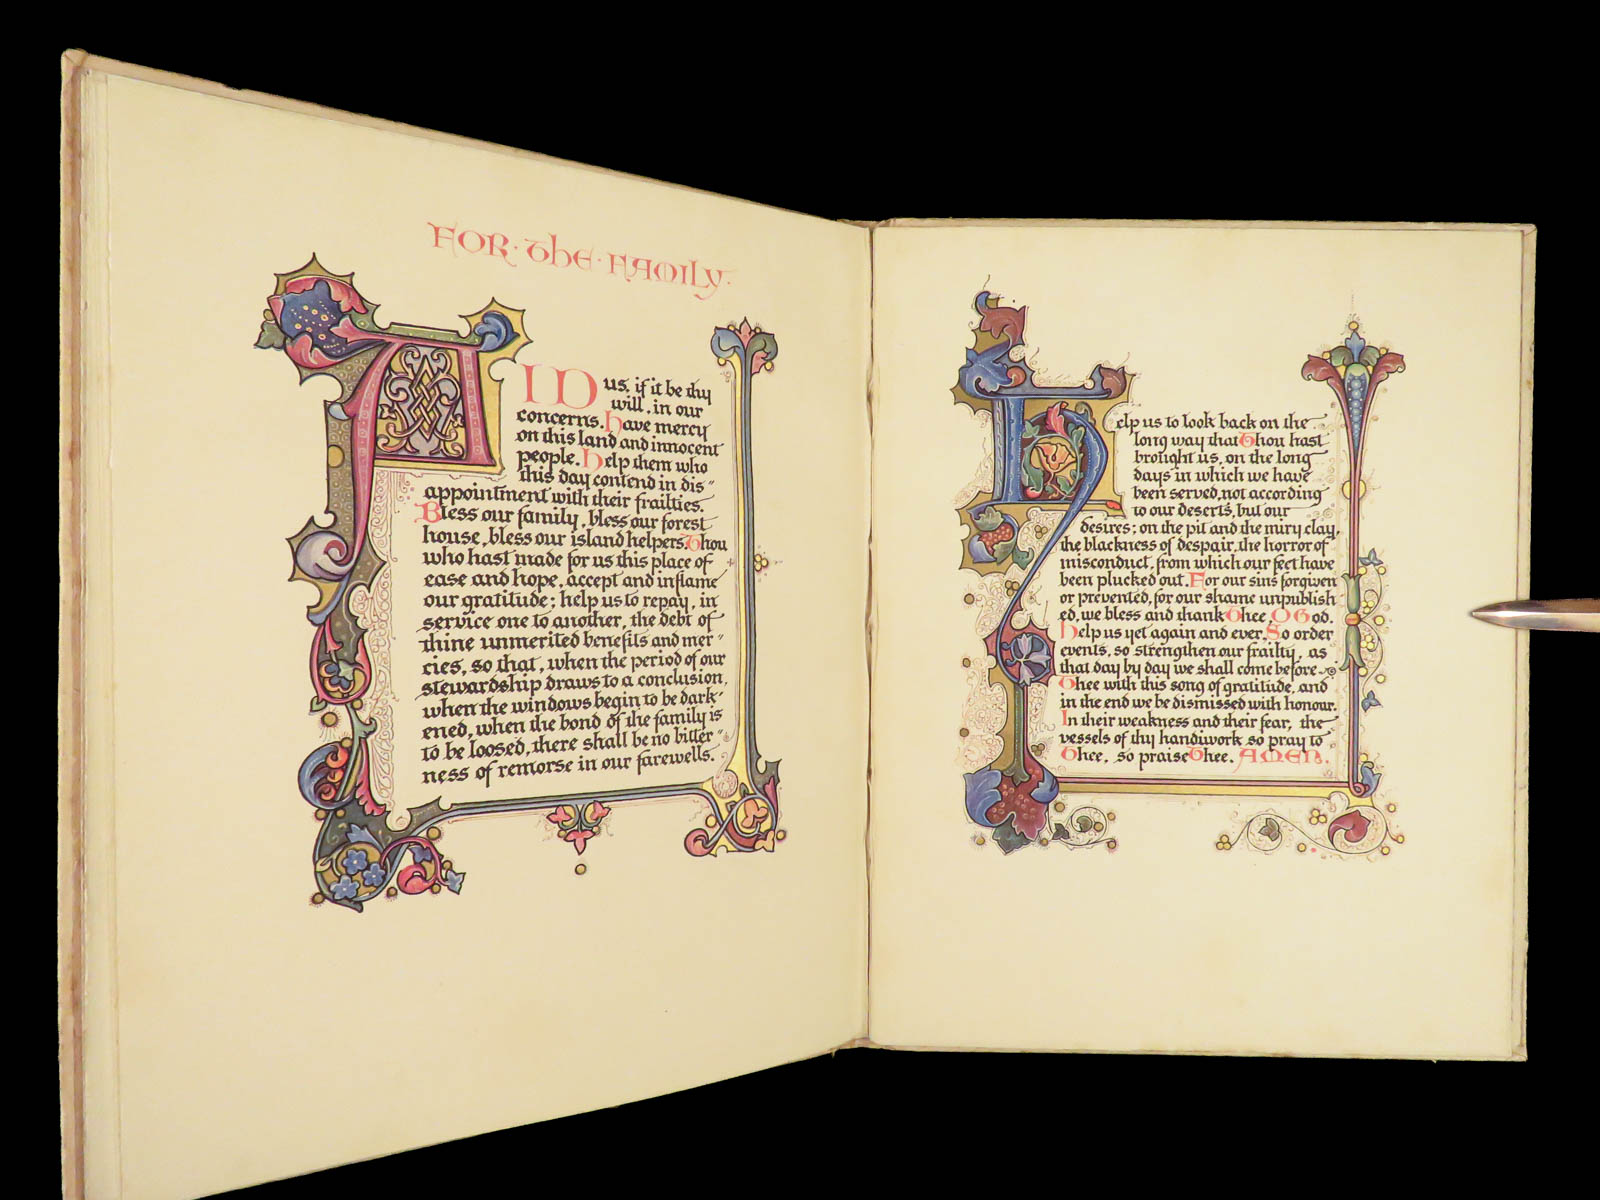 FOR · THE · FAMILY ·
AID us, if it be thy
will, in our
concerns. Have mercy
on this land and innocent
people. Help them who
this day contend in dis"
appointment with their frailties.
Bless our family, bless our forest
house, bless our island helpers. Thou
who hast made for us this place of
ease and hope, accept and inflame
our gratitude; help us to repay, in
service one to another, the debt of
thine unmerited benefits and mer"
cies, so that, when the period of our
stewardship draws to a conclusion,
when the windows begin to be dark"
ened, when the bond of the family is
to be loosed, there shall be no bitter"
ness of remorse in our farewells.
Help us to look back on the
long way that Thou hast
brought us, on the long
days in which we have
been served, not according
to our deserts, but our
desires; on the pit and the miry clay,
the blackness of despair, the horror of
misconduct, from which our feet have
been plucked out. For our sins forgiven
or prevented, for our shame unpublish
ed, we bless and thank Thee, O God.
Help us yet again and ever. So order
events, so strengthen our frailty, as
that day by day we shall come before
Thee with this song of gratitude, and
in the end we be dismissed with honour.
In their weakness and their fear, the
vessels of thy handiwork so pray to
Thee, so praise Thee. AMEN.